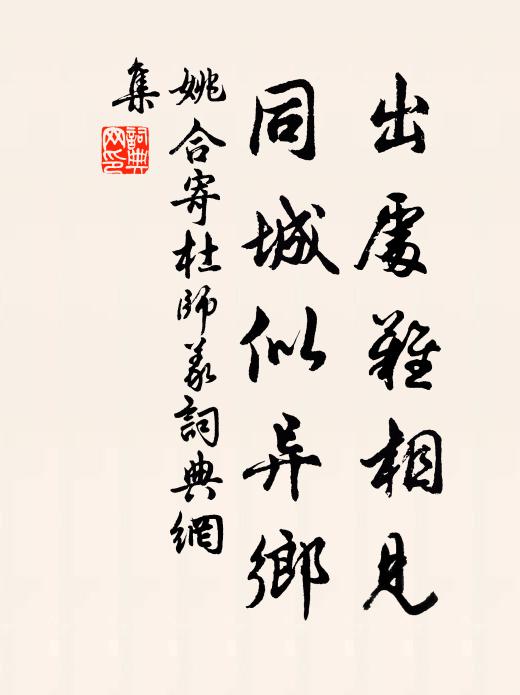 出處難相見
同城似异鄉
姚合寄杜師義詞典網
集
詞典网印